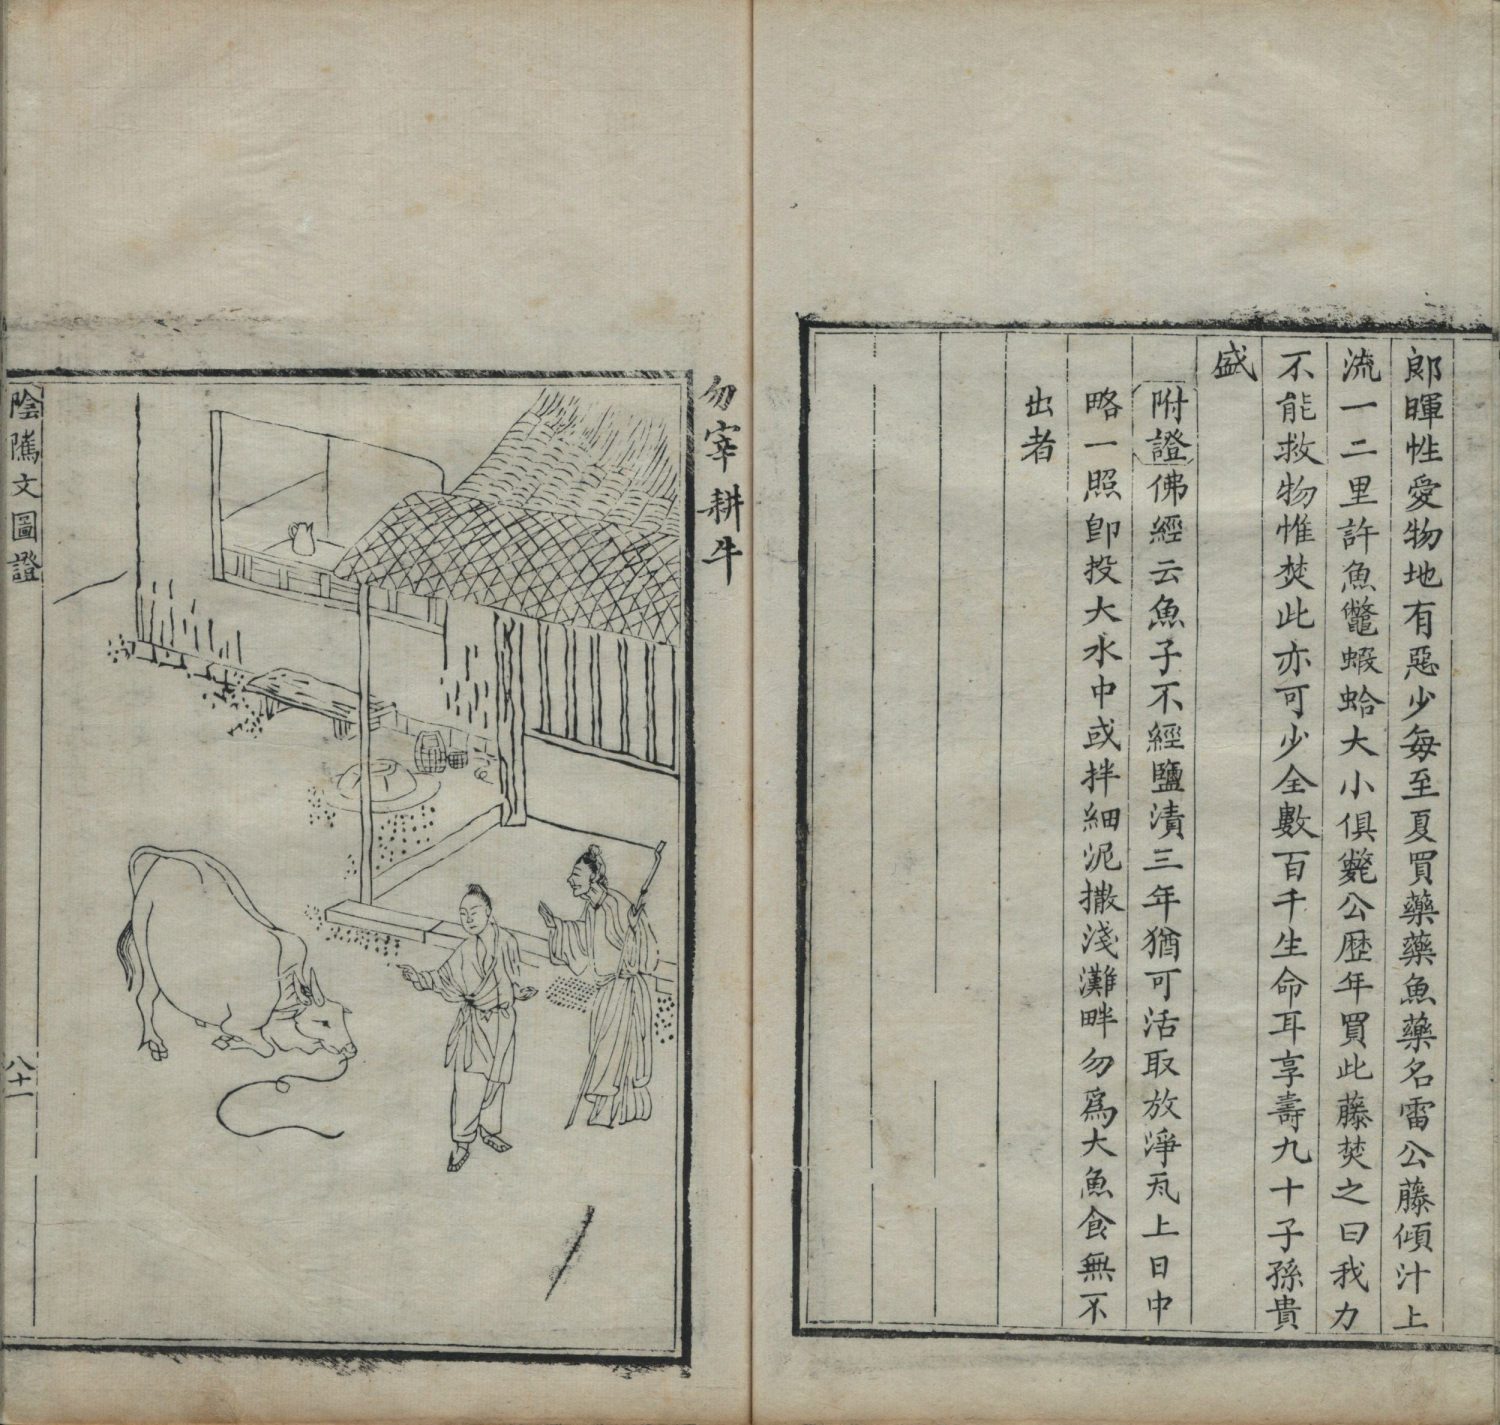 郞暉性愛物地有惡少每至夏買藥藥魚藥名雷公藤傾汁上
流一二里許魚鼈蝦蛤大小俱斃公歷年買此藤焚之曰我力
不能救物惟焚此亦可少全數百千生命耳享壽九十子孫貴
盛
附證佛經云魚子不經鹽漬三年猶可活取放淨瓦上日中
略一照卽投大水中或拌細泥撒淺灘畔勿爲大魚食無不
出者
勿宰耕牛
陰騭文圖證
八十一